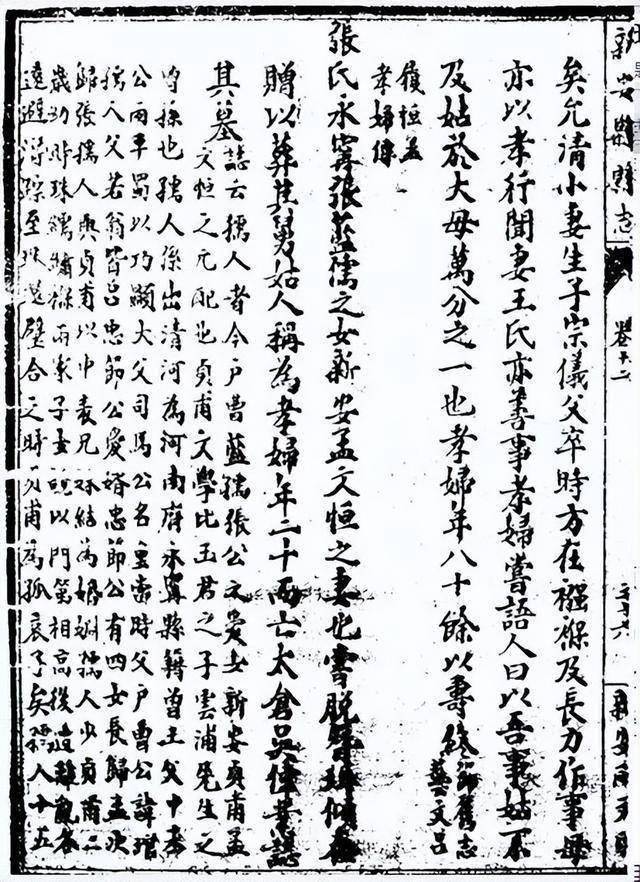 新安縣志
卷十二
矣允清小妻生子宗儀父卒時方在襁褓及長力作事母
亦以孝行聞妻王氏亦善事孝婦嘗語人曰以吾事姑不
及姑於大母萬分之一也孝婦年八十餘以壽終節舊志
藝文呂
孝婦傳
張氏永寧張藍孺之女新安孟文恒之妻也嘗脫簪珥傾
贈以葬其舅姑人稱為孝婦年二十而亡太倉吳偉業誌
其墓誌云孺人者今戶曹藍孺張公之愛女新安貞甫孟
文恒之元配也貞甫文學比玉君之子雲浦先生之
曾孫也孺人系出清河為河南府永寧縣籍曾王父中孝
公兩平蜀以功顯大父司馬公名重當時父戶曹公諱
孺人父若翁皆呂忠節公愛婿忠節公有四女長歸孟次
歸張孺人與貞甫以中表兄妹結為婚姻孺人少貞甫二
歲幼時珠繡繃褓兩家子女既以門第相高後遭難亂各
遠避至珠還璧合之時貞甫為孤哀子矣孺人十五